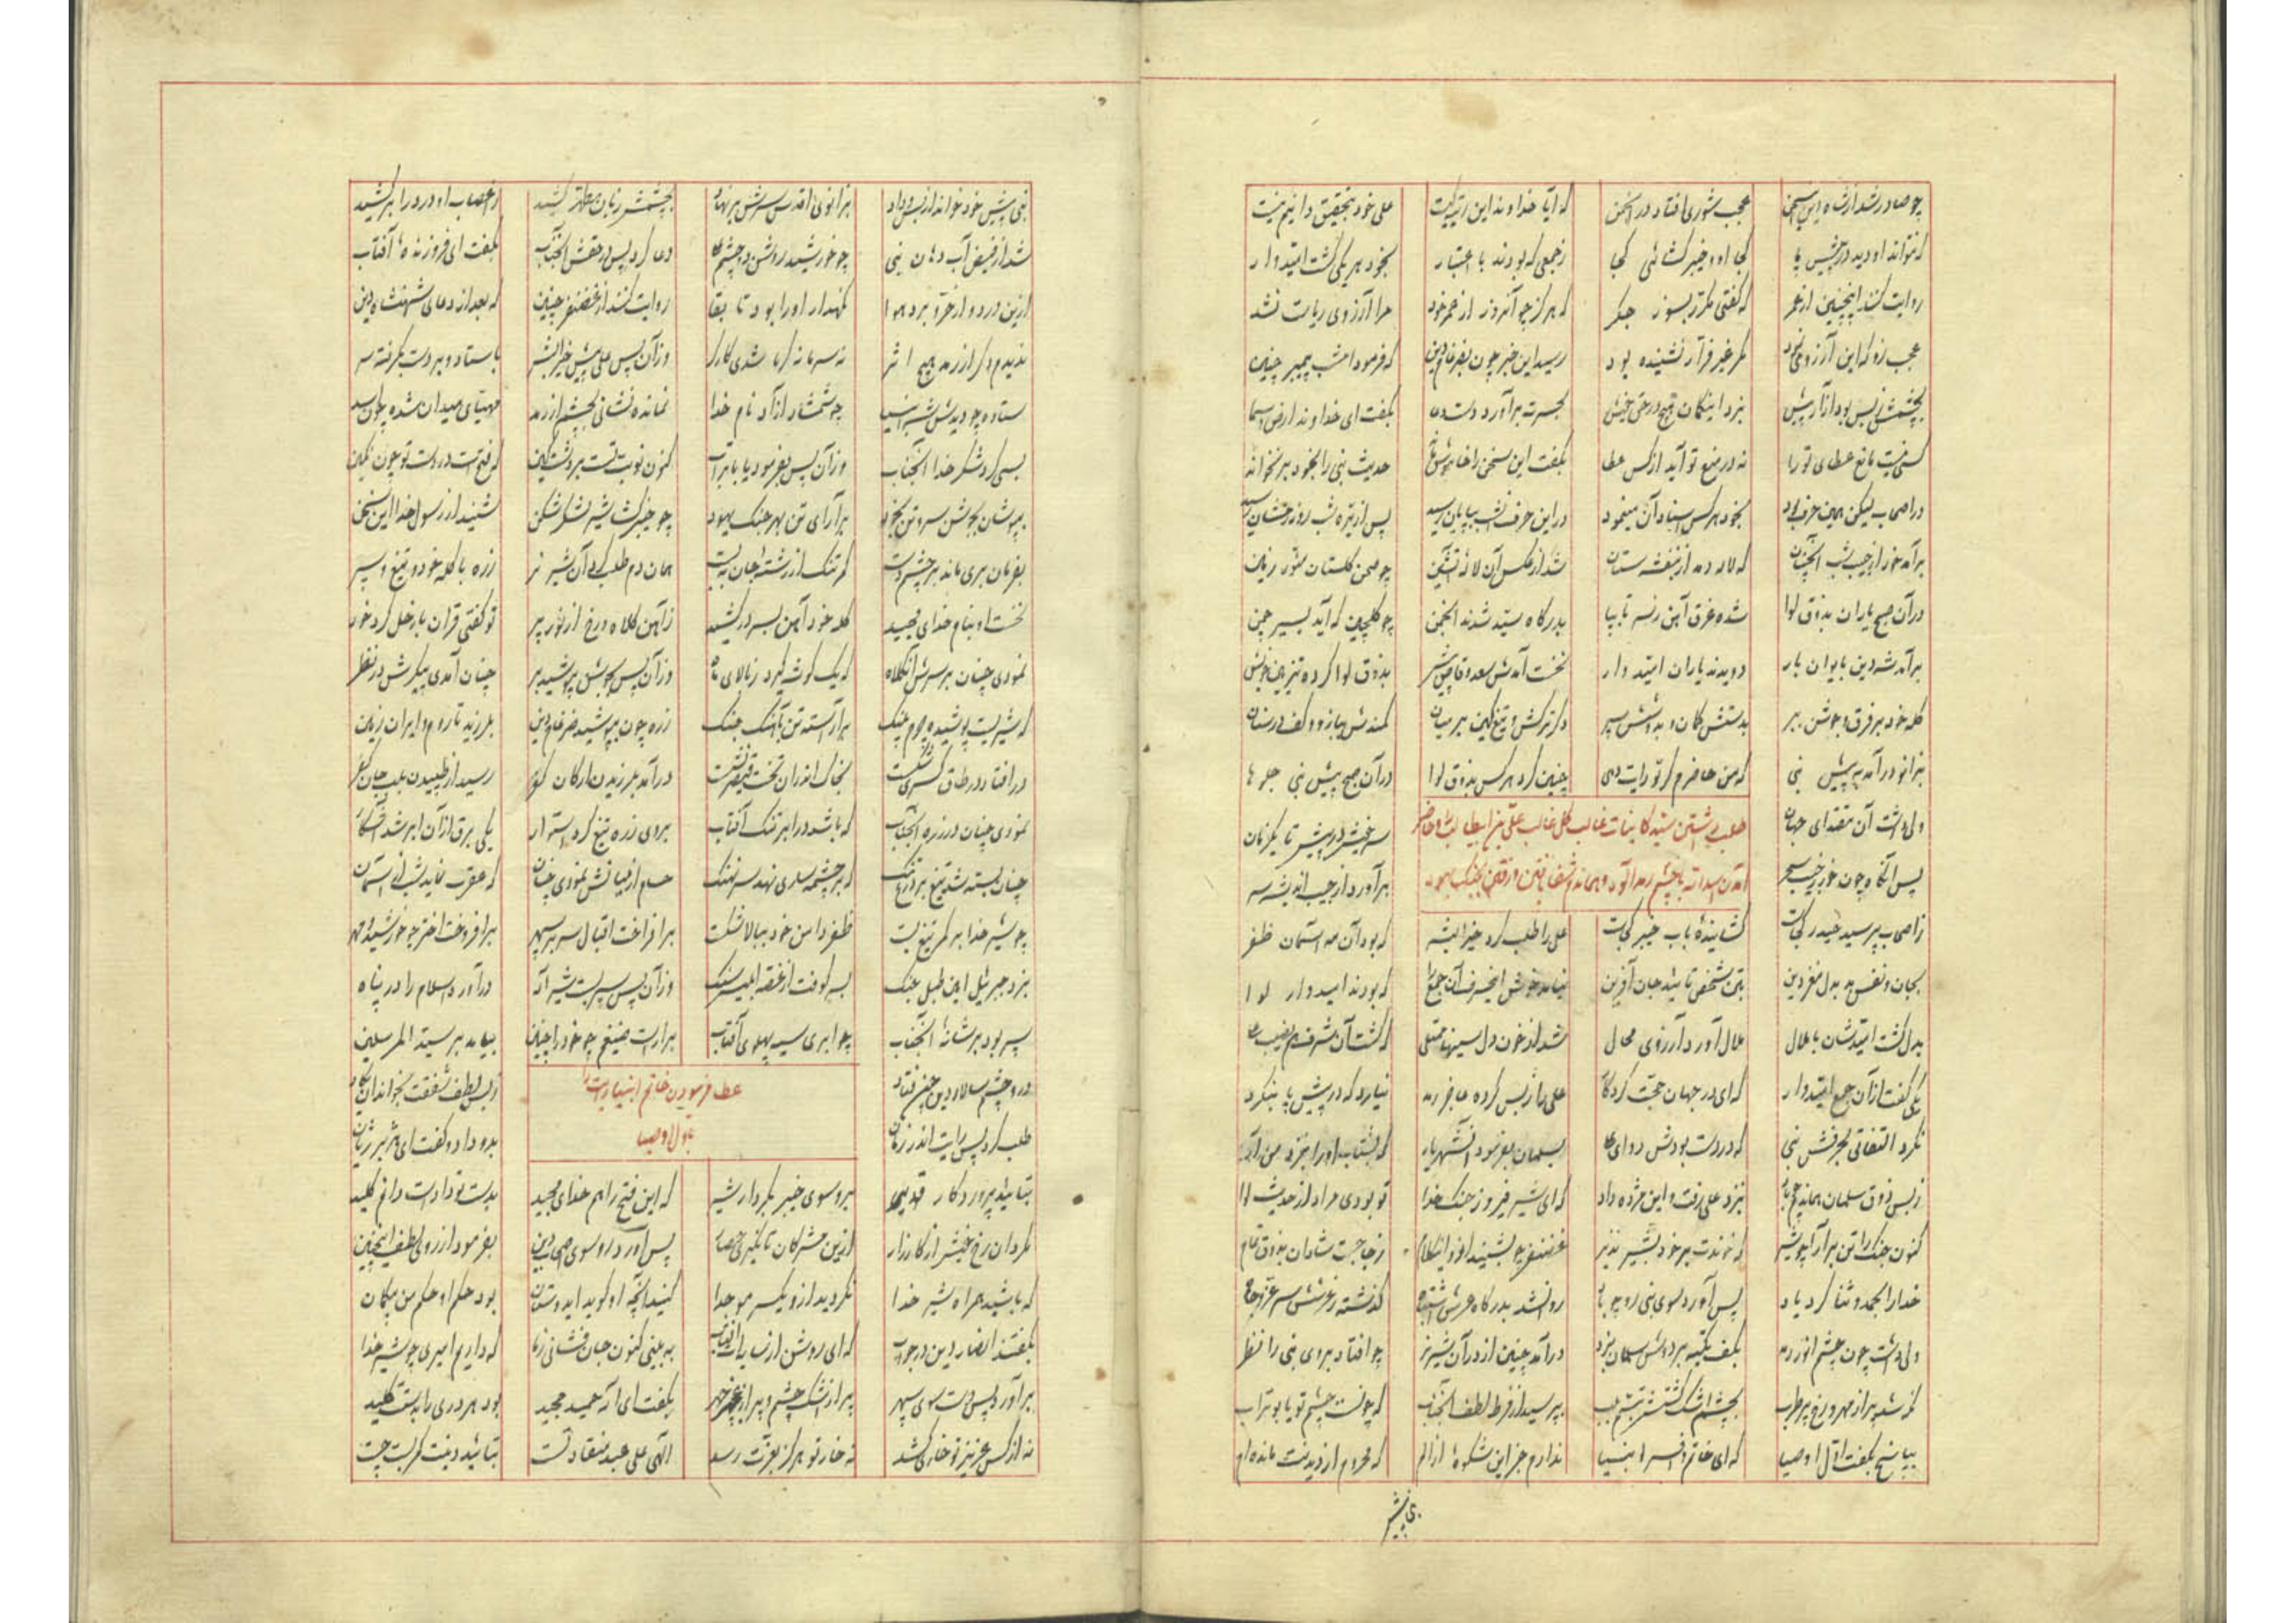 چو صادر شد از شاه این سخن عجب شوری افتاد در انجمن که آیا خداوند این رتبه کیست علی خود بتحقیق دانیم نیست
که نتواند او دید در پیش پا کجا او و خیبر گشائی کجا ز جمعی که بودند با اعتبار بخود هر یکی گشت امیدوار
روایت کنند اینچنین از عمر که گفتی مکرر بسوز جگر که هرگز چو آنروز از عمر خود مرا آرزوی ریاست نشد
عجب زو که این آرزو مگر غیر فرار نشنیده بود رسید این خبر چون که فرمود امشب پیمبر چنین
بچشمش ز بس بود آزار پیش نبرد اینگمان هیچ در حق خویش بحسرت برآورد دست دعا بگفت ای خداوند ارض و سما
کسی نیست مانع عطای تو را نه در منع تو آید از کس عطا بگفت این سخن را حدیث نبی را بخود بر نخواند
در اصحاب لیکن همین حرف بود بخود هر کس اسناد آن مینمود در این حرف شب بپایان رسید پس از تیره شب روز رخشان رسید
برآمد خور از جیب شب آنچنان که لاله دمد از بنفشه ستان شد از عکس آن لاله آتشین چو صحن گلستان منور زمین
در آن صبح یاران بذوق لوا شده غرق آهن ز سر تا بپا بدرگاه سید شدند انجمن چو گلچین که آید بسیر چمن
برآمد شه دین بایوان بار دویدند یاران امیدوار نخست آمدش سعد وقاص پیش بذوق لوا کرده
کله خود بر فرق و جوشن ببر بدستش کمان و بدوشش سپر دگر ترکش و تیغ کین بر میان کمندش ببازو و کف در سنان
بزانو درآمد به پیش نبی که من حاضرم گر تو رایت دهی چنین کرد هر کس بذوق لوا در آن صبح پیش نبی جلوه‌ها
طلب داشتن سید کاینات غالب کل غالب علی بن ابیطالب و حاضر
ولی داشت آن مقتدای جهان سر خویش در پیش تا یکزمان
آمدن اسدالله با چشم رمدآلود
پس آنگاه چون خور ز جیب سحر برآورد از جیب اندیشه سر
ز اصحاب پرسید حیدر کجاست گشایندهٔ باب خیبر کجاست علی را طلب کرد خیرالبشر که بود آن مه آسمان ظفر
بجان و نفس بد بدل مغز دین بتن شخص تائید جان آفرین نیامد خوش این حرف آن جمع را که بودند امیدوار لوا
بدل گشت امیدشان با ملال ملال آورد آرزوی محال شد از خون دل سینها ممتلی که گشت آن شرف هم نصیب علی
یکی گفت از آن جمع امیدوار که ای در جهان حجت کردگار علی را ز بس کرده عاجز رمد نیارد که در پیش پا بنگرد
نکرد التفاتی بحرفش نبی که در دست بودش دوای علی بسلمان بفرمود آن شهریار که بشتاب او را بنزد من آر
ز بس ذوق سلمان بنزد علی رفت و این مژده داد که ای شیر فیروز جنگ خدا تو بودی مراد از حدیث لوا
کنون جنگ را تن برآرا چو شیر که خوندت بر خود بشیر نذیر غضنفر چو بشنید از و این کلام ز جا جست شادان بذوق تمام
خدا را بحمد و ثنا کرد یاد پس آورد سوی نبی رو چو باد روان شد بدرگاه عرش اشتباه گذشته ز عرشش سر عز و جاه
ولی داشت چون چشم انور رمد بکف تکیه بر دوش سلمان بزد درآمد چنین از در آن شیر نر چو افتاد بروی نبی را نظر
که شد پر از مهر و رخ پر طرب بچشم اشک گشتش تبسم بلب بپرسید از فرط لطف آنجناب که چونست چشم تو یا بوتراب
بپاسخ بگفت اول اوصیا که ای خاتم و افسر انبیا ندارم جز این شکوهٔ از الم که محروم از دیدنت مانده‌ام
نبی پیش خود خواند از بس وداد بزانوی اقدس سرش بر نهاد بچشمش زبان مطهر کشید ز اعصاب او درد را بر کشید
شد از فیض آب دهان نبی چو خورشید روشن دو چشم علی دعا کرد پس در حقش آنجناب بگفت ای فروزندهٔ آفتاب
ازین درد و از حر و برد هوا نگهدار او را بود تا بقا روایت کنند از غضنفر چنین که بعد از دعای شهنشاه دین
ندیدم دگر از رمد هیچ اثر نه سرما نه گرما شدی کارگر وز آن پس علی پیش خیرالبشر باستاد و بر دست بگرفته سر
ستاده چو دیدش شه انبیا چو شمشاد آزاد نام خدا نمانده نشانی بچشم از رمد مهیای میدان شده چون اسد
بسی کرد شکر خدا آنجناب وز آن پس بفرمود یا بوتراب کنون نوبت تست که فتح است در دست تو چون نگین
بپوشان بجوشن سر و تن بخود برآرای تن بهر جنگ یهود چو خیبرگشا شیر لشکر شکن شنید از رسول خدا این سخن
بفرمان بری ماند بر چشم دست کمر تنگ از رشتهٔ جان ببست همان دم طلب کرد آن شیر نر زره با کله خود و تیغ و سپر
نخست او بنام خدای مجید کله خود آهن بسر در کشید ز آهن کلاه و رخ از نور پر تو گفتی قران با زحل کرد خور
نمودی چنان بر سرش آن کلاه که یک گوشه گیرد ز بالای ماه وز آن پس چو جوشن بپوشید بر چنان آمدی پیکرش در نظر
که شیریست پوشیده چرم پلنگ برآراسته تن بآهنگ جنگ زره چون بپوشید ضرغام دین بلرزید تا روم و ایران زمین
در افتاد در طاق کسری شکست بخاک اندران تخت قیصر نشست درآمد بلرزیدن ارکان کفر رسید از طپیدن بلب جان کفر
نمودی چنان در زره آنجناب که باشد در ابر تنک آفتاب بروی زره تیغ کرد استوار یکی برق از آن ابر شد آشکار
چنان بسته شد تیغ که بر چشمه ساری نهد سر نهنگ حسام از میانش نمودی چنان که عقرب نماید شب از آسمان
چو شیر خدا بر کمر تیغ بست ظفر دامن خود ببالا شکست برافراخت اقبال سر بر سپهر برافروخت اختر چو خورشید چهر
بزد جبرئیل امین طبل جنگ بسر کوفت از غصه ابلیس سنگ وز آن پس سپر بست شیر اله درآورد اسلام را در پناه
سپر بود بر شانهٔ آنجناب چو ابری سیه پهلوی آفتاب برآراست ضیغم چو خود را چنین بیامد بر سید المرسلین
عطا فرمودن خاتم انبیا رایت را
در و چشم سالار دین چون فتاد ز بس لطف و شفقت بخواند
باول اوصیا
طلب کرد پس رایت اندر زمان بدو داد و گفت ای هژبر ژیان
بتائید پروردگار قدیم برو سوی خیبر بکردار شیر که این فتح را هم خدای مجید بدست تو دادست دادم کلید
مگردان رخ خویش از کارزار ازین مشرکان تا نگیری حصار پس آورد رو سوی اصحاب دین بفرمود از روی لطف اینچنین
که باشید همراه شیر خدا نگردید از و یکسر مو جدا کنید آنچه او گوید ای دوستان بود حکم او حکم من بیگمان
بگفتند انصار دین در جواب که ای روشن از ببینی کنون جان فشانی ز ما که داریم امیری چو شیر خدا
برآورد پس دست سوی سپهر پر از اشک چشم و پر از مهر چهر بگفت ای اله حمید مجید بود هر دری را بدستت کلید
نه از کس عزیز تو خاری کشد نه خار تو هرگز بعزت رسد الهی علی عبد منقاد تست بتائید دینت کمر بست چست
نبی پیش